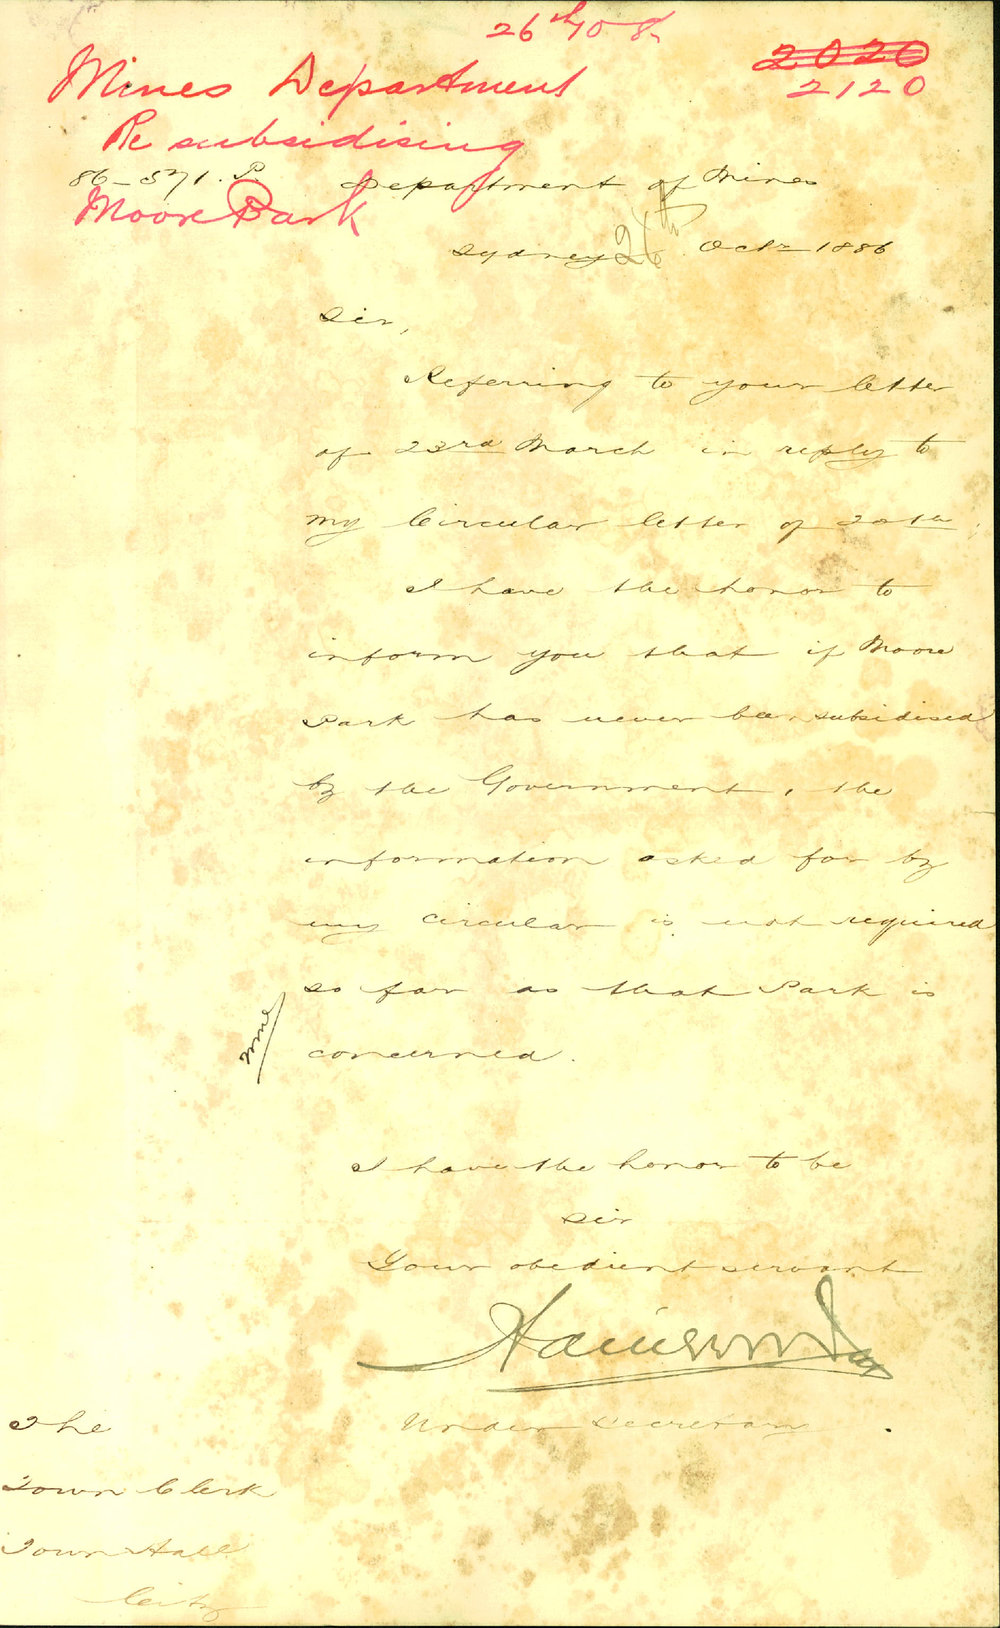 26th/10
2020
2120
Mines Department
Re subsidising
Moore Park
86-571.P.
Department of Mines
Sydney 26th Octr 1886
Sir,
Referring to your letter
of 23rd March in reply to
my Circular letter of 20th,
I have the honor to
inform you that if Moore
Park has never been subsidised
by the Government, the
information asked for by
my circular is not required
so far as that Park is
concerned.
I have the honor to be
Sir
Your obedient servant
Under Secretary
The
Town Clerk
Town Hall
City